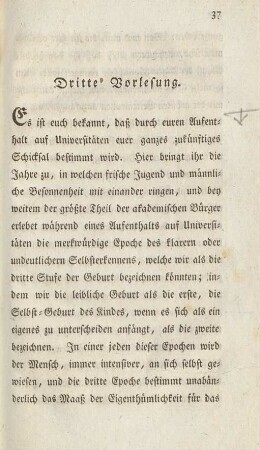 37
Dritte Vorlesung.
Es ist euch bekannt, daß durch euren Aufent-
halt auf Universitäten euer ganzes zukünftiges
Schicksal bestimmt wird. Hier bringt ihr die
Jahre zu, in welchen frische Jugend und männli-
che Besonnenheit mit einander ringen, und bey
weitem der größte Theil der akademischen Bürger
erlebet während eines Aufenthalts auf Universi-
täten die merkwürdige Epoche des klarern oder
undeutlichern Selbsterkennens, welche wir als die
dritte Stufe der Geburt bezeichnen könnten; in-
dem wir die leibliche Geburt als die erste, die
Selbst-Geburt des Kindes, wenn es sich als ein
eigenes zu unterscheiden anfängt, als die zweite
bezeichnen. In einer jeden dieser Epochen wird
der Mensch, immer intensiver, an sich selbst ge-
wiesen, und die dritte Epoche bestimmt unabän-
derlich das Maaß der Eigenthümlichkeit für das